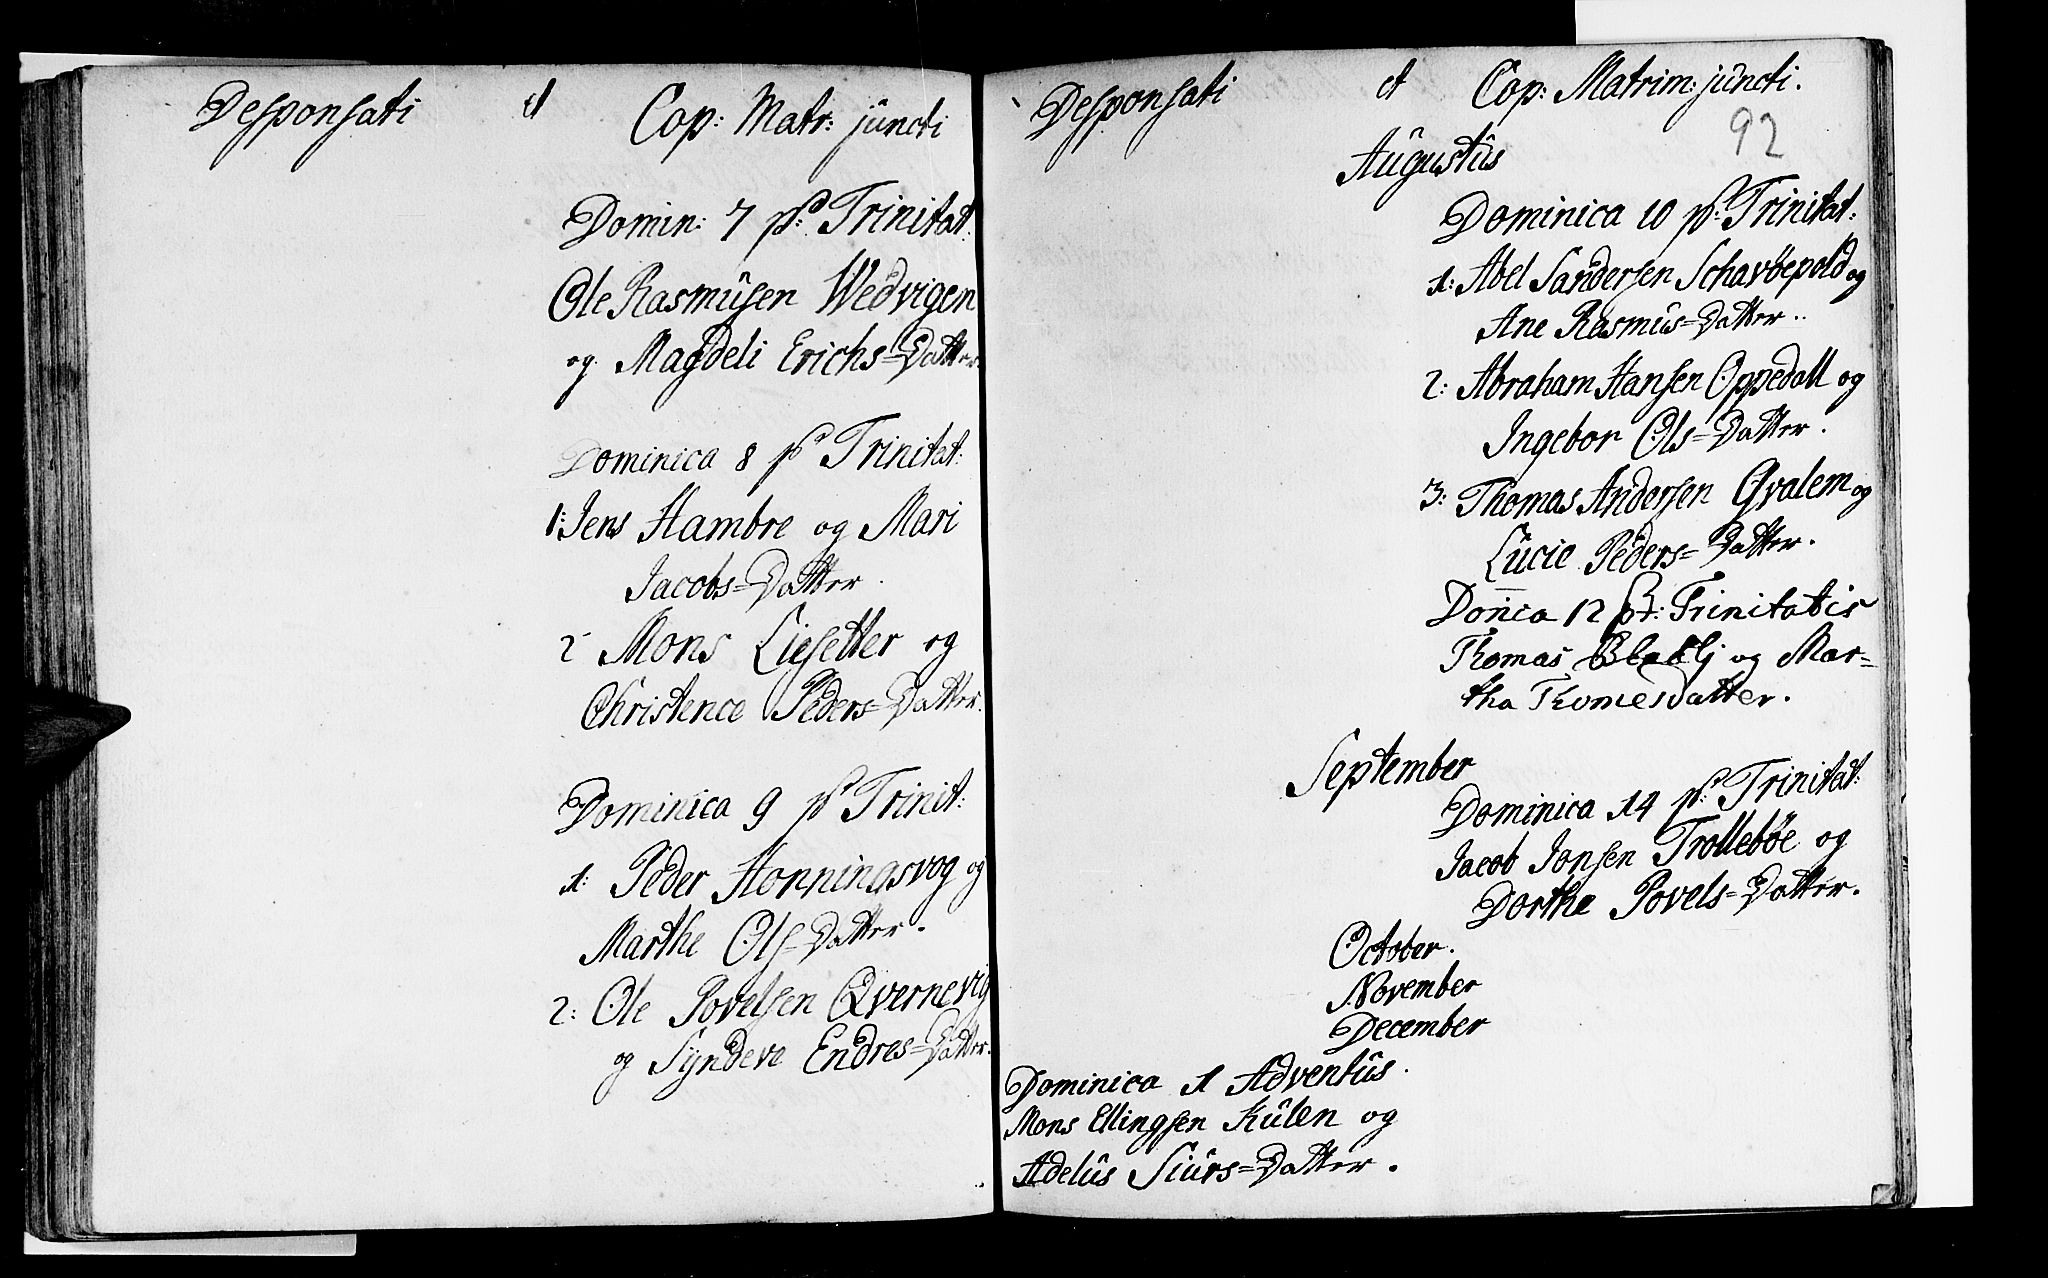 Desponsati et Cop: Matr: juncti
Domin: 7 p: Trinitat:
Ole Rasmusen Wedvigen
og Magdeli Erichs=Datter.
Dominica 8 p Trinitat:
1: Jens Hambre og Mari
Jacobs=Datter.
2 Mons Liesetter og
Christence Peders=Datter.
Dominica 9 p Trinit:
1: Peder Honningsvog og
Marthe Ols=Datter.
2: Ole Povelsen Qvernevig
og Syndeve Endres=Datter.
Desponsati et Cop: Matrim: juncti.
92
Augustus
Dominica 10 p: Trinitat:
1: Abel Sandersen Scharøepold og
Ane Rasmus=Datter..
2: Abraham Hansen Oppedall og
Ingebor Ols=Datter.
3: Thomas Andersen Qvalem og
Lucie Peders=Datter.
Dom̅ica 12 pt: Trinitatis
Thomas og Mar=
tha Thomesdatter.
September
Dominica 14 p: Trinitat:
Jacob Jonsen Trollebøe og
Dorthe Povels=Datter.
October.
November
December
Dominica 1 Adventus.
Mons Ellingsen Kulen og
Adelus Siurs=Datter.